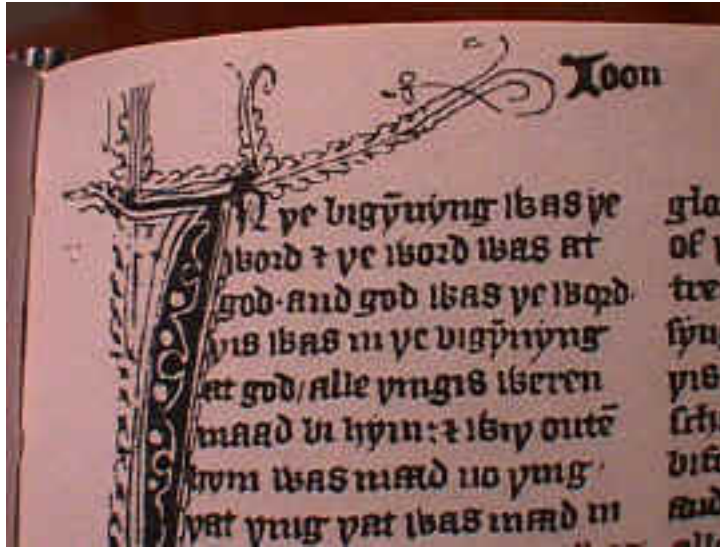 Ioon
IN þe bigẏnẏng was þe
word ⁊ þe word was at
god· and god was þe word·
þis was in þe bigẏnẏng
at god/ alle þingis weren
maad bi hẏm: ⁊ wiþ outē
hym was maad no þing·
þat þing þat was maad in
glo
of
tre
þis
and